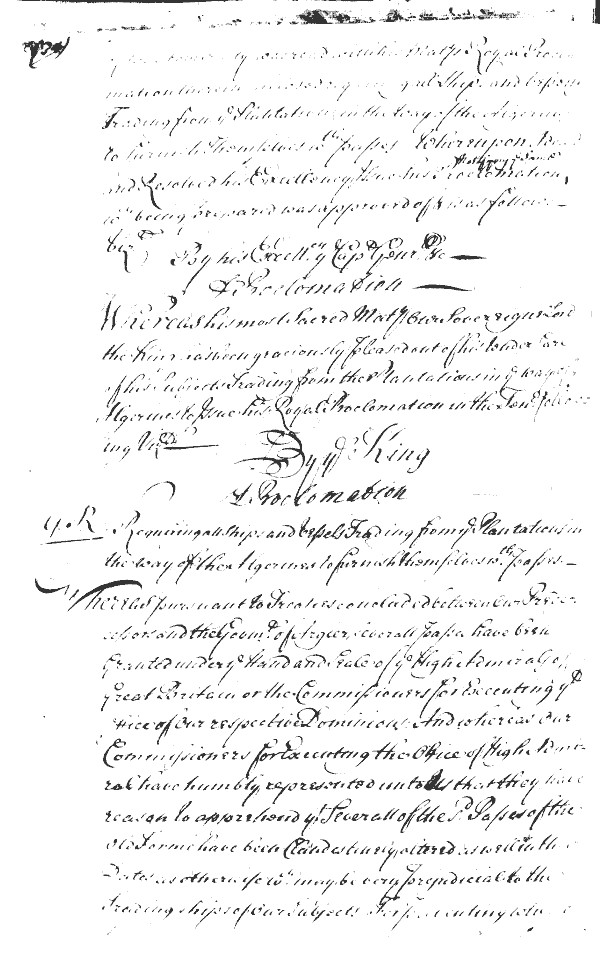 was read with his Maty's Royal Procla
mation therein requiring all Ships and Vessels
Trading from ye Plantations in the way of the Algerines
to furnish themselves wth passes Whereupon
and Resolved his Excellency Issue his Proclamation,
wch being prepared was approved of & is as follows—
Vizt By his Excelly Capt Genl &c—
A Proclamation—
Whereas his most Sacred Maty Our Sovereigne Lord
the King has been graciously pleased out of his tender Care
of his Subjects Trading from the Plantations in ye way of ye
Algerines to Issue his Royal Proclamation in the follow
ing Vizt—
By ye King
A Proclamation
G. R. Requiring all Ships and Vessels Trading from ye Plantations in
the way of the Algerines to furnish themselves wth passes—
Whereas pursuant to Treaties concluded between Our Prede
cessors and the Governt of Argier, severall passes have been
Granted under ye Hand and Seale of ye High Admirals of
Great Britain or the Commissioners for Executing yt
Office of Our respective Dominions And whereas Our
Commissioners for Executing the Office of High Admi
ral have humbly represented unto Us that they have
reason to apprehend yt Severall of the sd Passes of the
old Forme have been Clandestinely altered as well in the
Dates as otherwise wch may be very prejudicial to the
Trading Ships of our Subjects For preventing